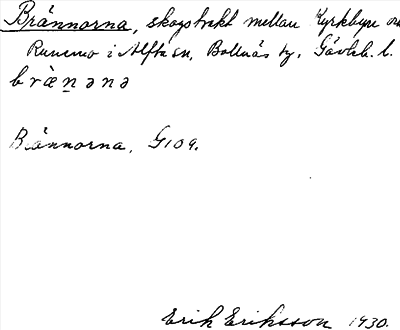 Brännorna, skogstrakt mellan Kyrkbyn o
Runemo i Alfta sn, Bollnäs tg, Gävleb. l.
bræ̀n̠ənə
Brännorna, G109.
Erik Eriksson 1930.